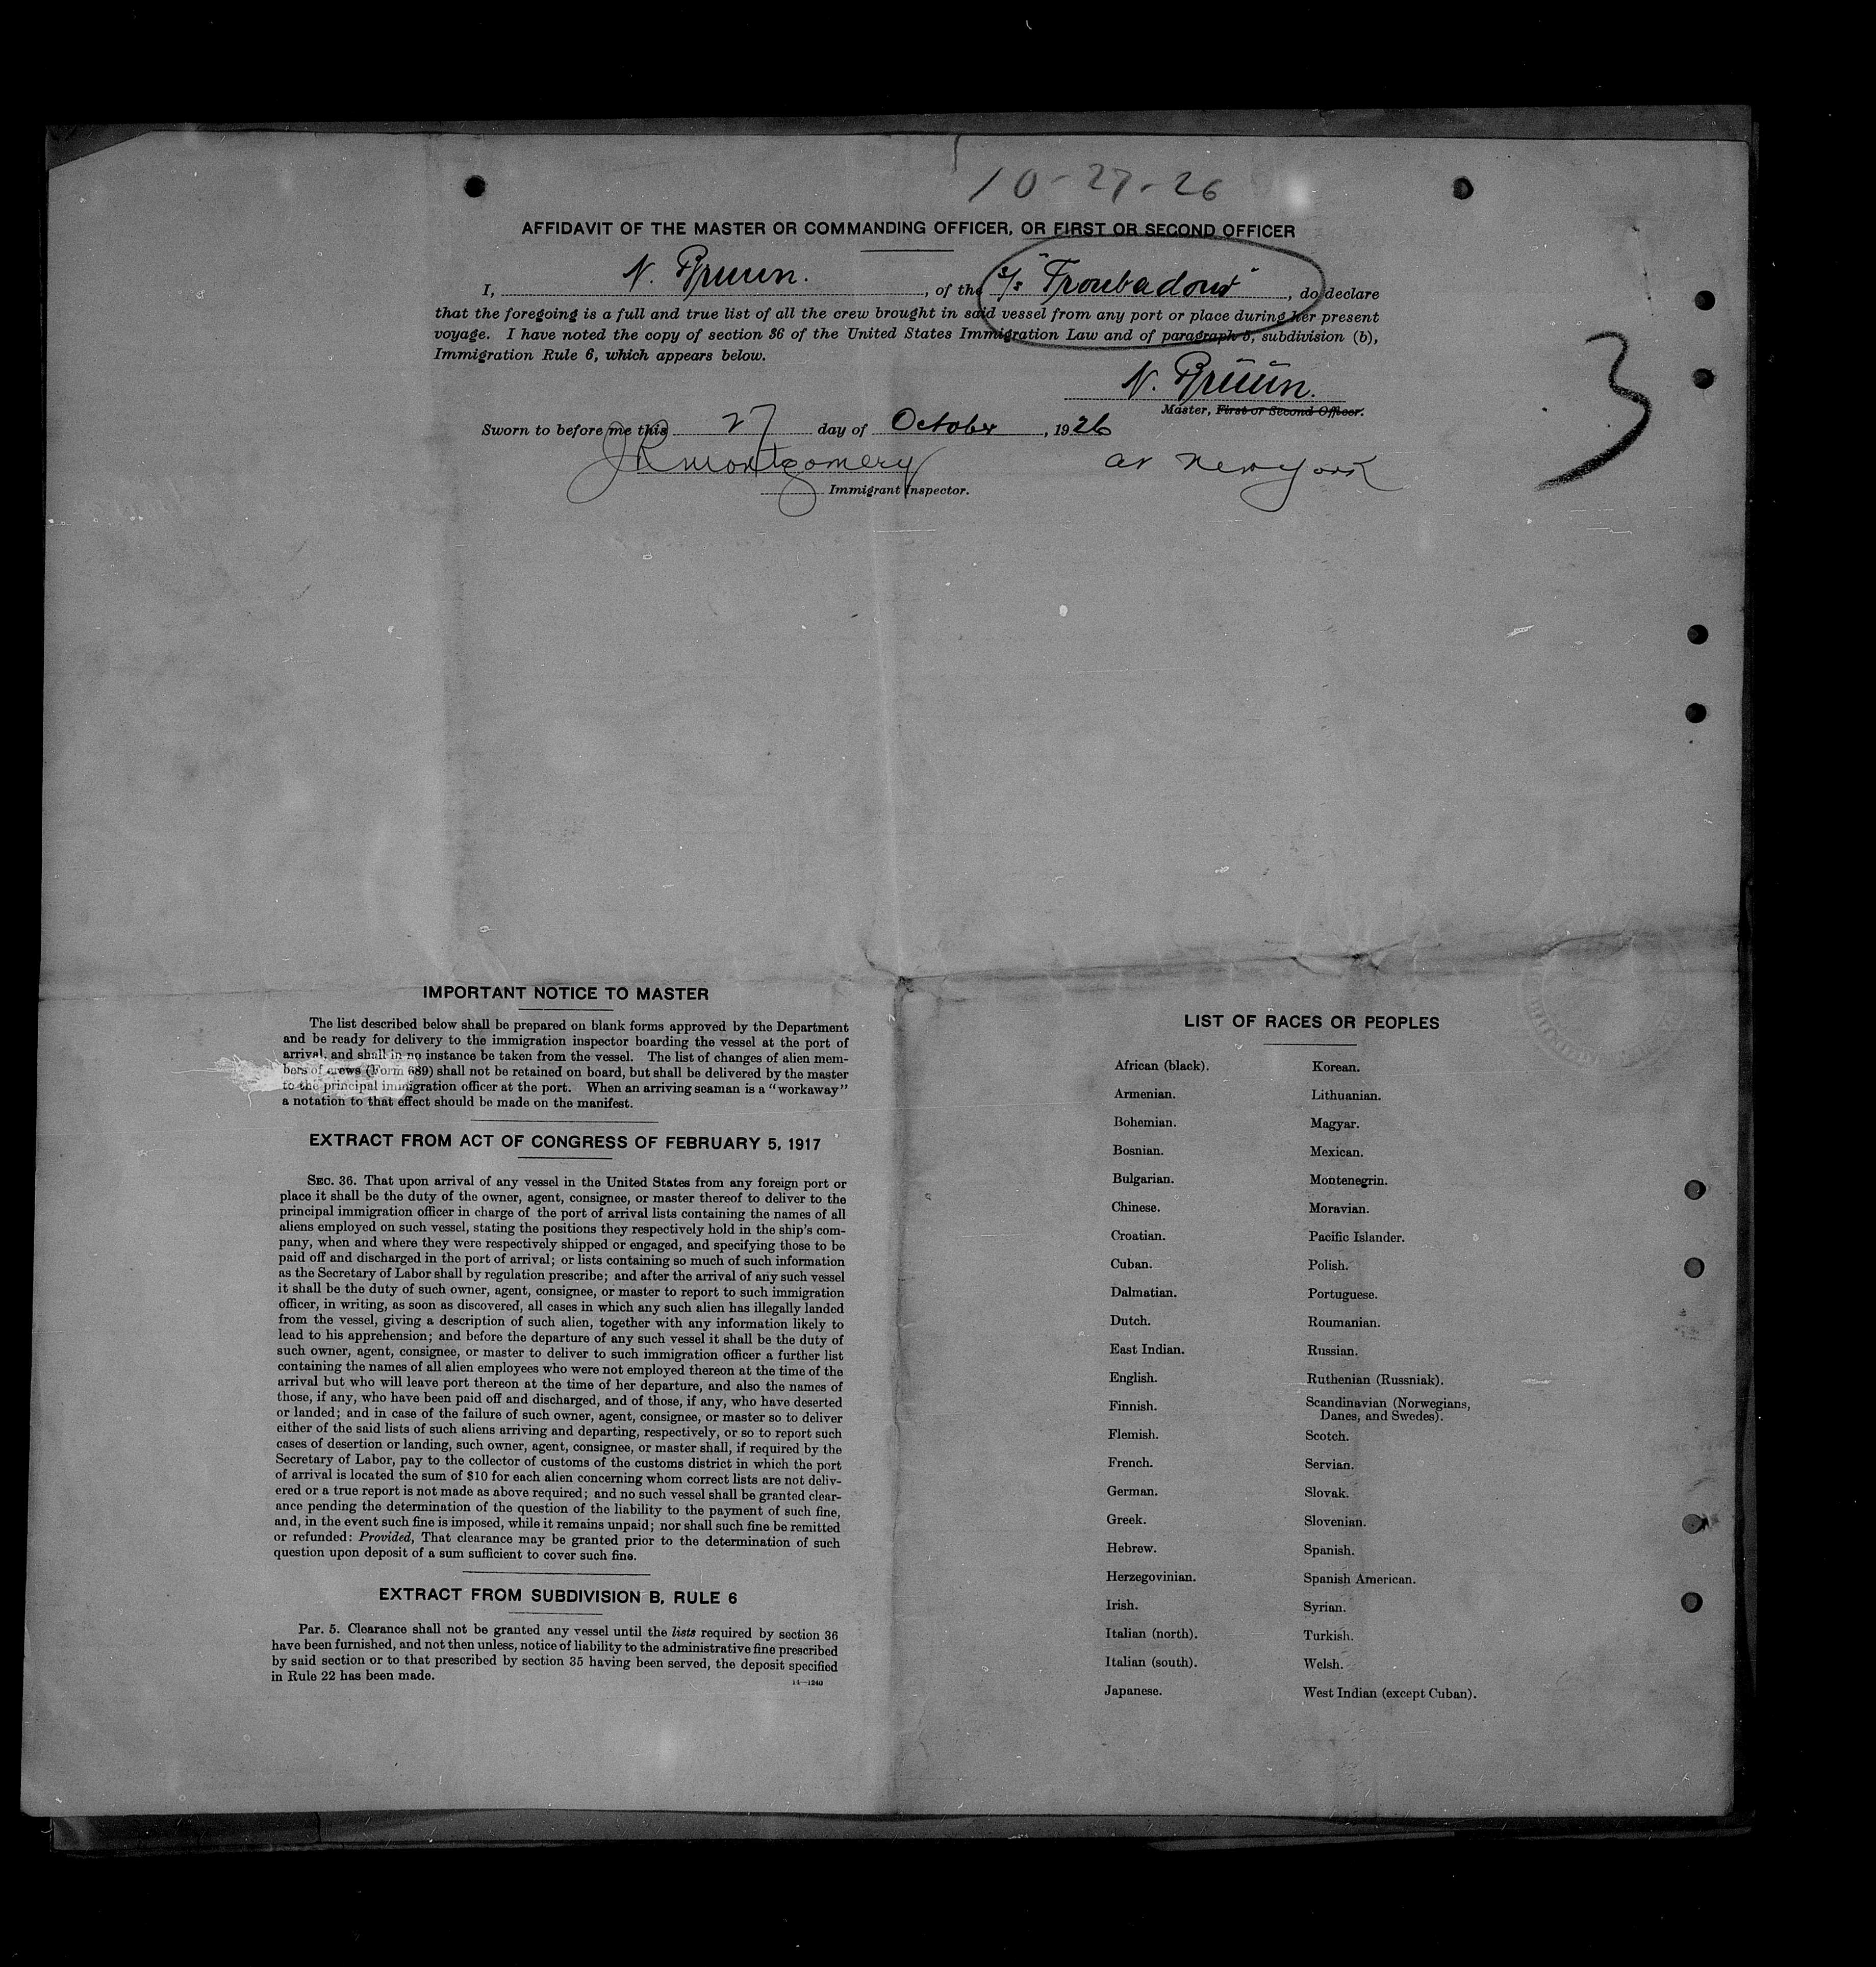 10-27-26
AFFIDAVIT OF THE MASTER OR COMMANDING OFFICER, OR FIRST OR SECOND OFFICER
I, N. Bruun., of the s/s "Troubadour", do declare
that the foregoing is a full and true list of all the crew brought in said vessel from any port or place during her present
voyage. I have noted the copy of section 36 of the United States Immigration Law and of paragraph 5, subdivision (b),
Immigration Rule 6, which appears below.
3
N. Brüün.
Master, First or Second Officer.
Sworn to before me this 27 day of October, 1926
JR Montgomery at New York
Immigrant Inspector.
IMPORTANT NOTICE TO MASTER
The list described below shall be prepared on blank forms approved by the Department
and be ready for delivery to the immigration inspector boarding the vessel at the port of
arrival, and shall in no instance be taken from the vessel. The list of changes of alien mem-
bers of crews (Form 689) shall not be retained on board, but shall be delivered by the master
to the principal immigration officer at the port. When an arriving seaman is a "workaway"
a notation to that effect should be made on the manifest.
EXTRACT FROM ACT OF CONGRESS OF FEBRUARY 5, 1917
SEC. 36. That upon arrival of any vessel in the United States from any foreign port or
place it shall be the duty of the owner, agent, consignee, or master thereof to deliver to the
principal immigration officer in charge of the port of arrival lists containing the names of all
aliens employed on such vessel, stating the positions they respectively hold in the ship's com-
pany, when and where they were respectively shipped or engaged, and specifying those to be
paid off and discharged in the port of arrival; or lists containing so much of such information
as the Secretary of Labor shall by regulation prescribe; and after the arrival of any such vessel
it shall be the duty of such owner, agent, consignee, or master to report to such immigration
officer, in writing, as soon as discovered, all cases in which any such alien has illegally landed
from the vessel, giving a description of such alien, together with any information likely to
lead to his apprehension; and before the departure of any such vessel it shall be the duty of
such owner, agent, consignee, or master to deliver to such immigration officer a further list
containing the names of all alien employees who were not employed thereon at the time of the
arrival but who will leave port thereon at the time of her departure, and also the names of
those, if any, who have been paid off and discharged, and of those, if any, who have deserted
or landed; and in case of the failure of such owner, agent, consignee, or master so to deliver
either of the said lists of such aliens arriving and departing, respectively, or so to report such
cases of desertion or landing, such owner, agent, consignee, or master shall, if required by the
Secretary of Labor, pay to the collector of customs of the customs district in which the port
of arrival is located the sum of $10 for each alien concerning whom correct lists are not deliv-
ered or a true report is not made as above required; and no such vessel shall be granted clear-
ance pending the determination of the question of the liability to the payment of such fine,
and, in the event such fine is imposed, while it remains unpaid; nor shall such fine be remitted
or refunded: Provided, That clearance may be granted prior to the determination of such
question upon deposit of a sum sufficient to cover such fine.
EXTRACT FROM SUBDIVISION B, RULE 6
Par. 5. Clearance shall not be granted any vessel until the lists required by section 36
have been furnished, and not then unless, notice of liability to the administrative fine prescribed
by said section or to that prescribed by section 35 having been served, the deposit specified
in Rule 22 has been made.
14—1240
LIST OF RACES OR PEOPLES
African (black). Korean.
Armenian. Lithuanian.
Bohemian. Magyar.
Bosnian. Mexican.
Bulgarian. Montenegrin.
Chinese. Moravian.
Croatian. Pacific Islander.
Cuban. Polish.
Dalmatian. Portuguese.
Dutch. Roumanian.
East Indian. Russian.
English. Ruthenian (Russniak).
Finnish. Scandinavian (Norwegians,
Danes, and Swedes).
Flemish. Scotch.
French. Servian.
German. Slovak.
Greek. Slovenian.
Hebrew. Spanish.
Herzegovinian. Spanish American.
Irish. Syrian.
Italian (north). Turkish.
Italian (south). Welsh.
Japanese. West Indian (except Cuban).